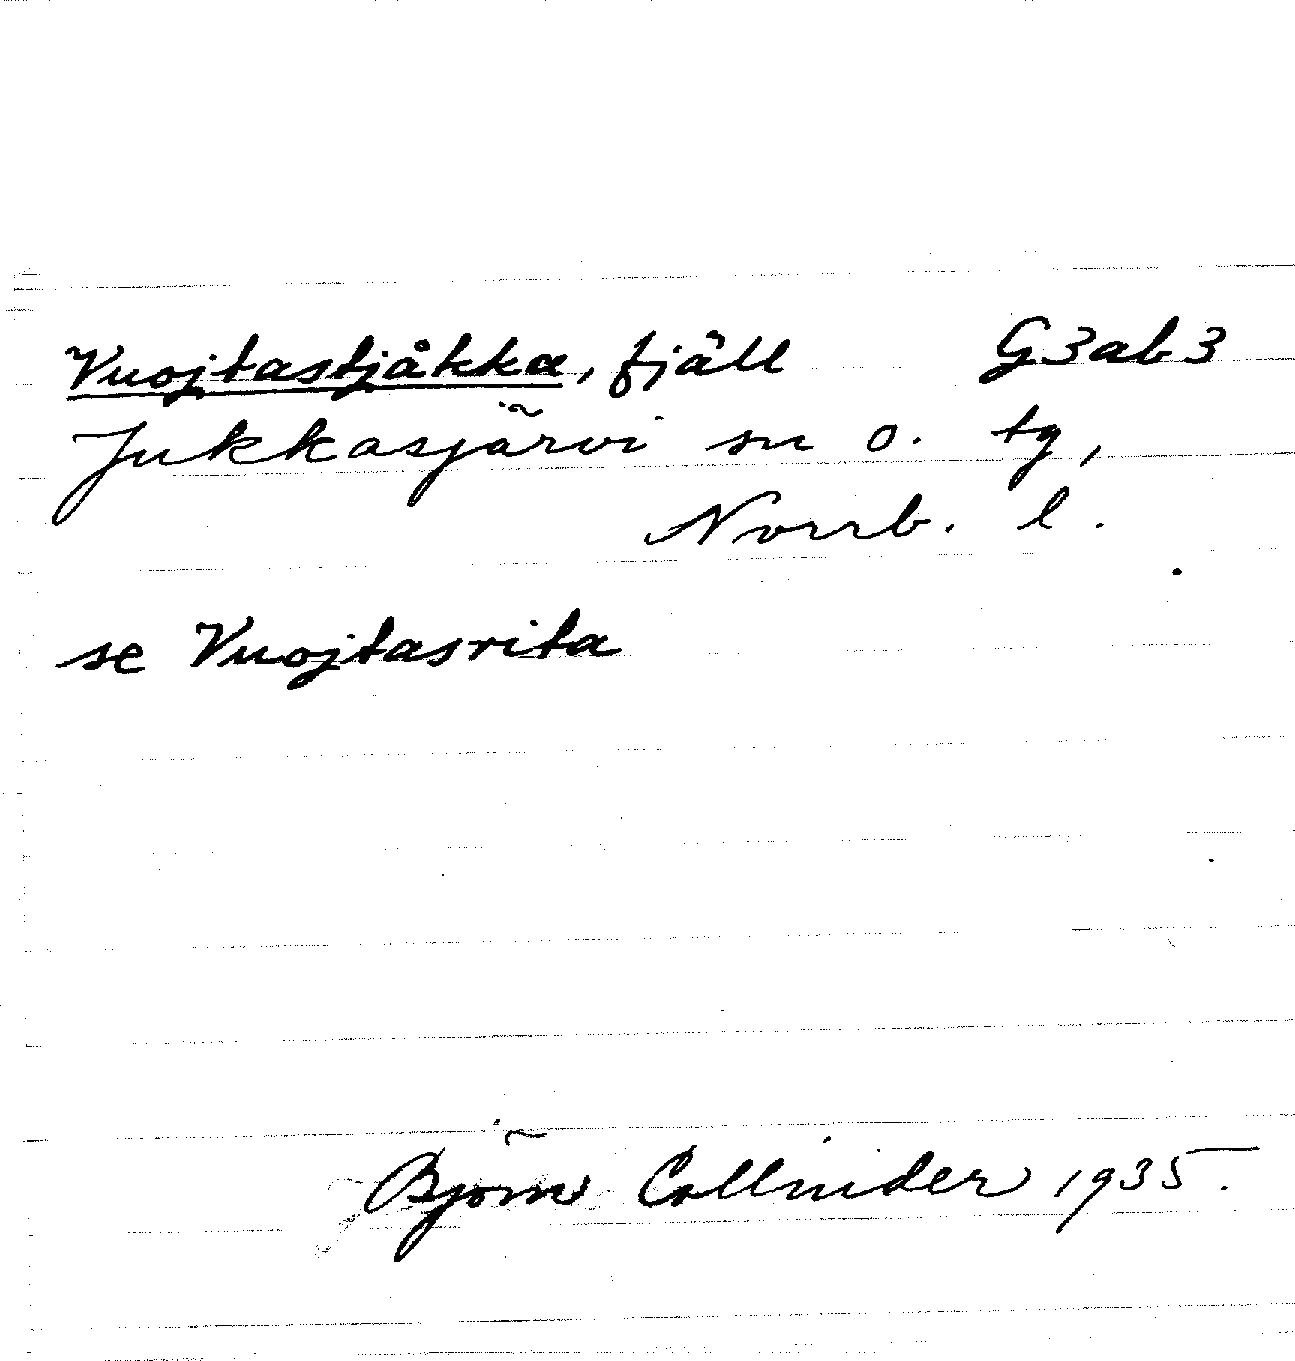 Vuojtastjåkka, fjäll G3ab3
Jukkasjärvi sn o. tg,
Norrb. l.
se Vuojtasrita
Björn Collinder 1935.